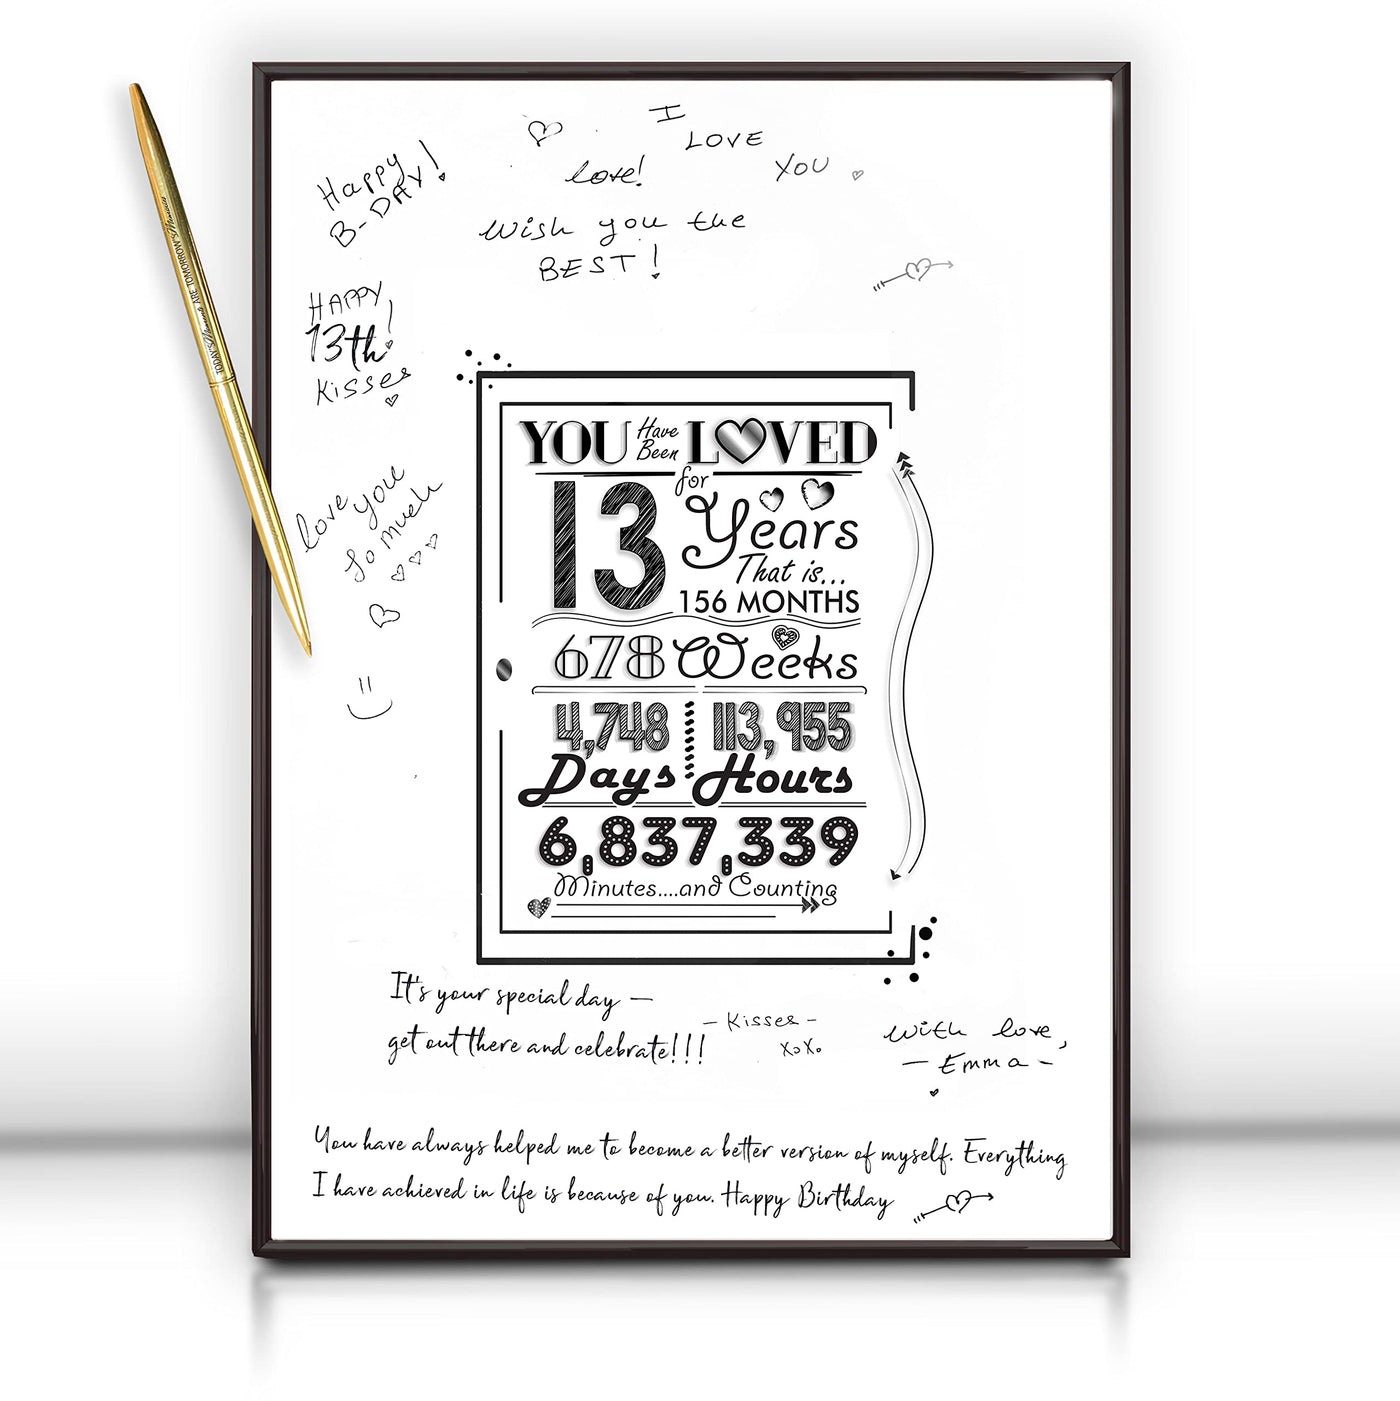 I
LOVE
YOU
love!
Happy
B-DAY!
Wish you the
BEST!
HAPPY
13th!
Kisses
love you
so much
TODAY'S Moments ARE TOMORROW'S Memories
YOU Have Been LOVED
for
13 Years
That is...
156 MONTHS
678 Weeks
4,748 113,955
Days Hours
6,837,339
Minutes....and Counting
It's your special day —
get out there and celebrate!!!
- Kisses -
XoXo
With love,
- Emma -
You have always helped me to become a better version of myself. Everything
I have achieved in life is because of you. Happy Birthday